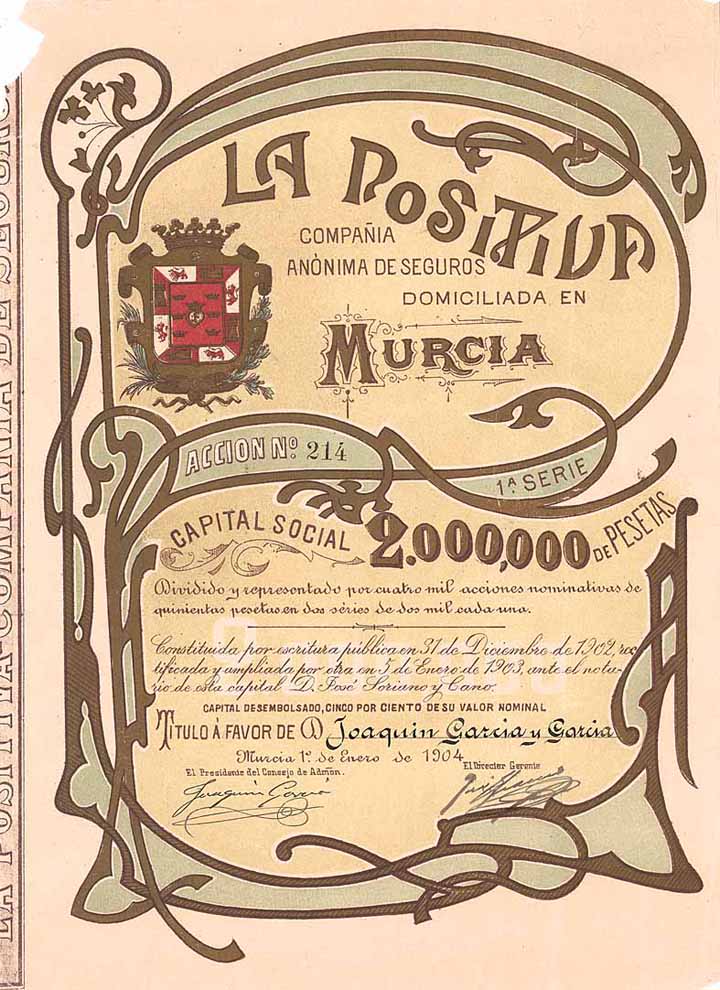 LA POSITIVA
COMPAÑIA
ANÓNIMA DE SEGUROS
DOMICILIADA EN
MURCIA
ACCION Nº 214
1ª SERIE
CAPITAL SOCIAL
2.000,000 DE PESETAS
Dividido y representado por cuatro mil acciones nominativas de
quinientas pesetas en dos séries de dos mil cada una.
Constituida por escritura pública en 31 de Diciembre de 1902, rec-
tificada y ampliada por otra en 5 de Enero de 1903, ante el nota-
rio de esta capital D. José Soriano y Cano.
CAPITAL DESEMBOLSADO, CINCO POR CIENTO DE SU VALOR NOMINAL
TITULO Á FAVOR DE D Joaquin Garcia y Garcia
Murcia 1º de Enero de 1904
El Presidente del Consejo de Admón.
El Director Gerente
Joaquin Garcia
LA POSITIVA-COMPAÑIA DE SEGURO